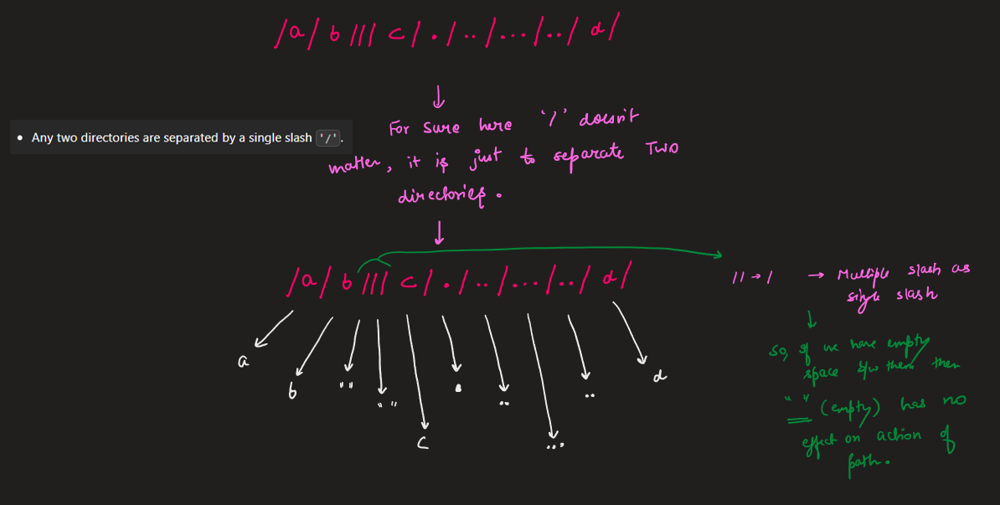 /a/ b /// c/ . / .. / ... / .. / d/
• Any two directories are separated by a single slash '/'.
For sure here '/' doesn't
matter, it is just to separate Two
directories.
/a/ b /// c/ . / .. / ... / .. / d/
a
b
" "
" "
c
.
..
...
..
d
// → / → Multiple slash as
single slash
so, if we have empty
space b/w them then
" " (empty) has no
effect on action of
path.